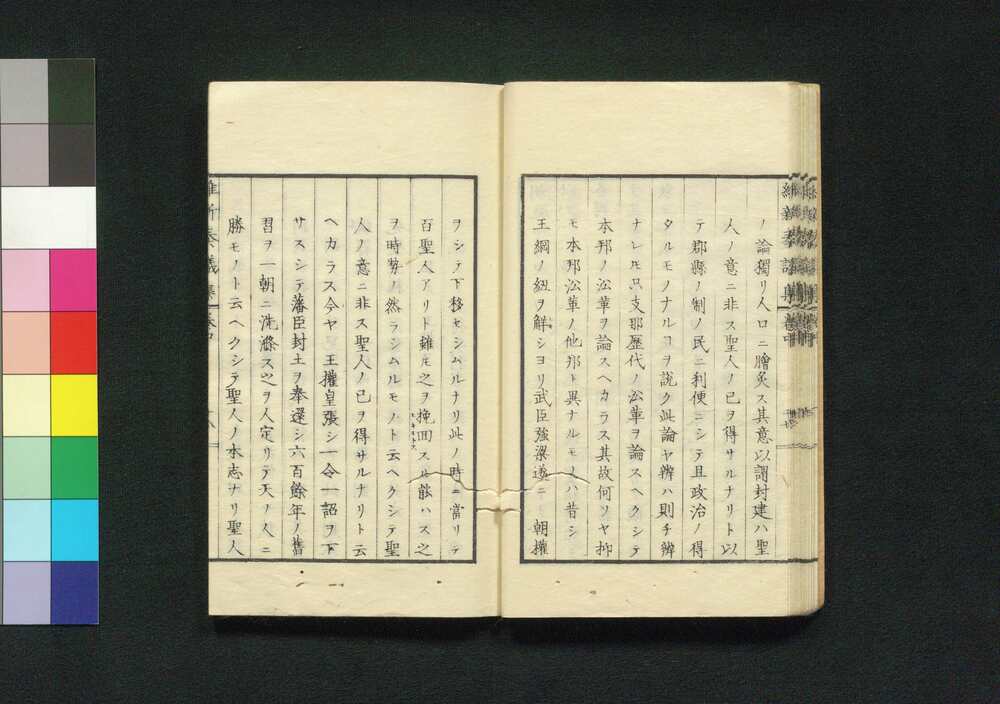 ノ論獨リ人口ニ膾炙ス其意以謂封建ハ聖
人ノ意ニ非ス聖人ノ已ヲ得サルナリト以
テ郡縣ノ制ノ民ニ利便ニシテ且政治ノ得
タルモノナルヿヲ説ク此論ヤ辨ハ則チ辨
ナレ𪜈只支那歴代ノ沿革ヲ論スヘクシテ
本邦ノ沿革ヲ論スヘカラス其故何ソヤ抑
モ本邦沿革ノ他邦ト異ナルモノハ昔シ
王綱ノ紐ヲ解シヨリ武臣強梁遂ニ 朝權
ヲシテ下移セシムルナリ此ノ時ニ當リテ
百聖人アリト雖𪜈之ヲ挽回スル能ハス之
ヲ時勢ノ然ラシムルモノト云ヘクシテ聖
人ノ意ニ非ス聖人ノ已ヲ得サルナリト云
ヘカラス今ヤ 王權皇張シ一令一詔ヲ下
サスシテ藩臣封土ヲ奉還シ六百餘年ノ舊
習ヲ一朝ニ洗滌ス之ヲ人定リテ天ノ人ニ
勝モノト云ヘクシテ聖人ノ本志ナリ聖人
維新奏議集 卷中